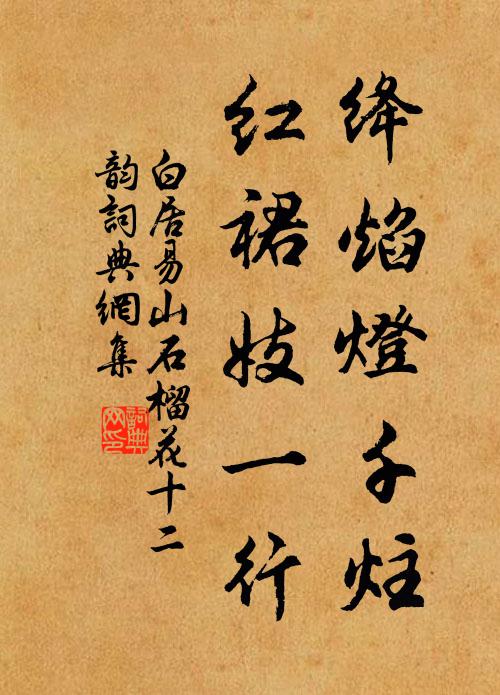 绛焰燈千炷
红裙妓一行
白居易山石榴花十二
韵詞典網集